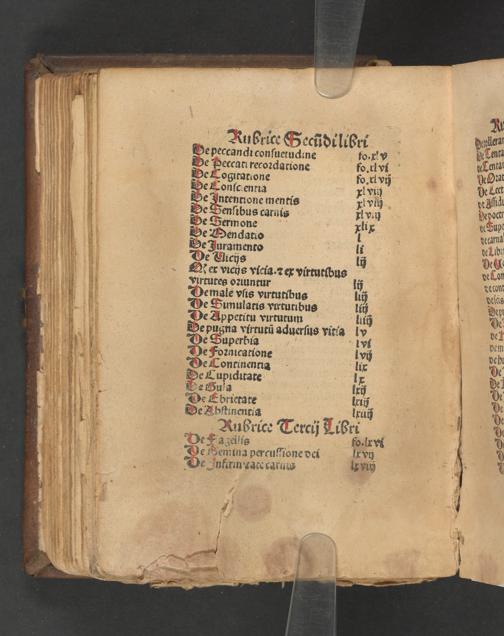 Rubrice Secūdi libri
De peccandi consuetudine fo. xlv
De Peccati recordatione fo. xlvi
De Cogitatione fo. xlvij
De Conscientia xlviij
De Intentione mentis xlviij
De Sensibus carnis xlviij
De Sermone xlix
De Mendatio l
De Iuramento li
De Vicijs lij
ex vicijs vicia. ⁊ ex virtutibus
virtutes oriuntur lij
De male vsis virtutibus liij
De Simulatis virtutibus liij
De Appetitu virtutum liiij
De pugna virtutū aduersus vitia lv
De Superbia lvi
De Fornicatione lvij
De Continentia lix
De Cupiditate lx
De Gula lxij
De Ebrietate lxiij
De Abstinentia lxiiij
Rubrice Tercij Libri
De Flagellis fo. lxvi
De Gemina percussione dei lxvij
De Infirmitate carnis lxviij